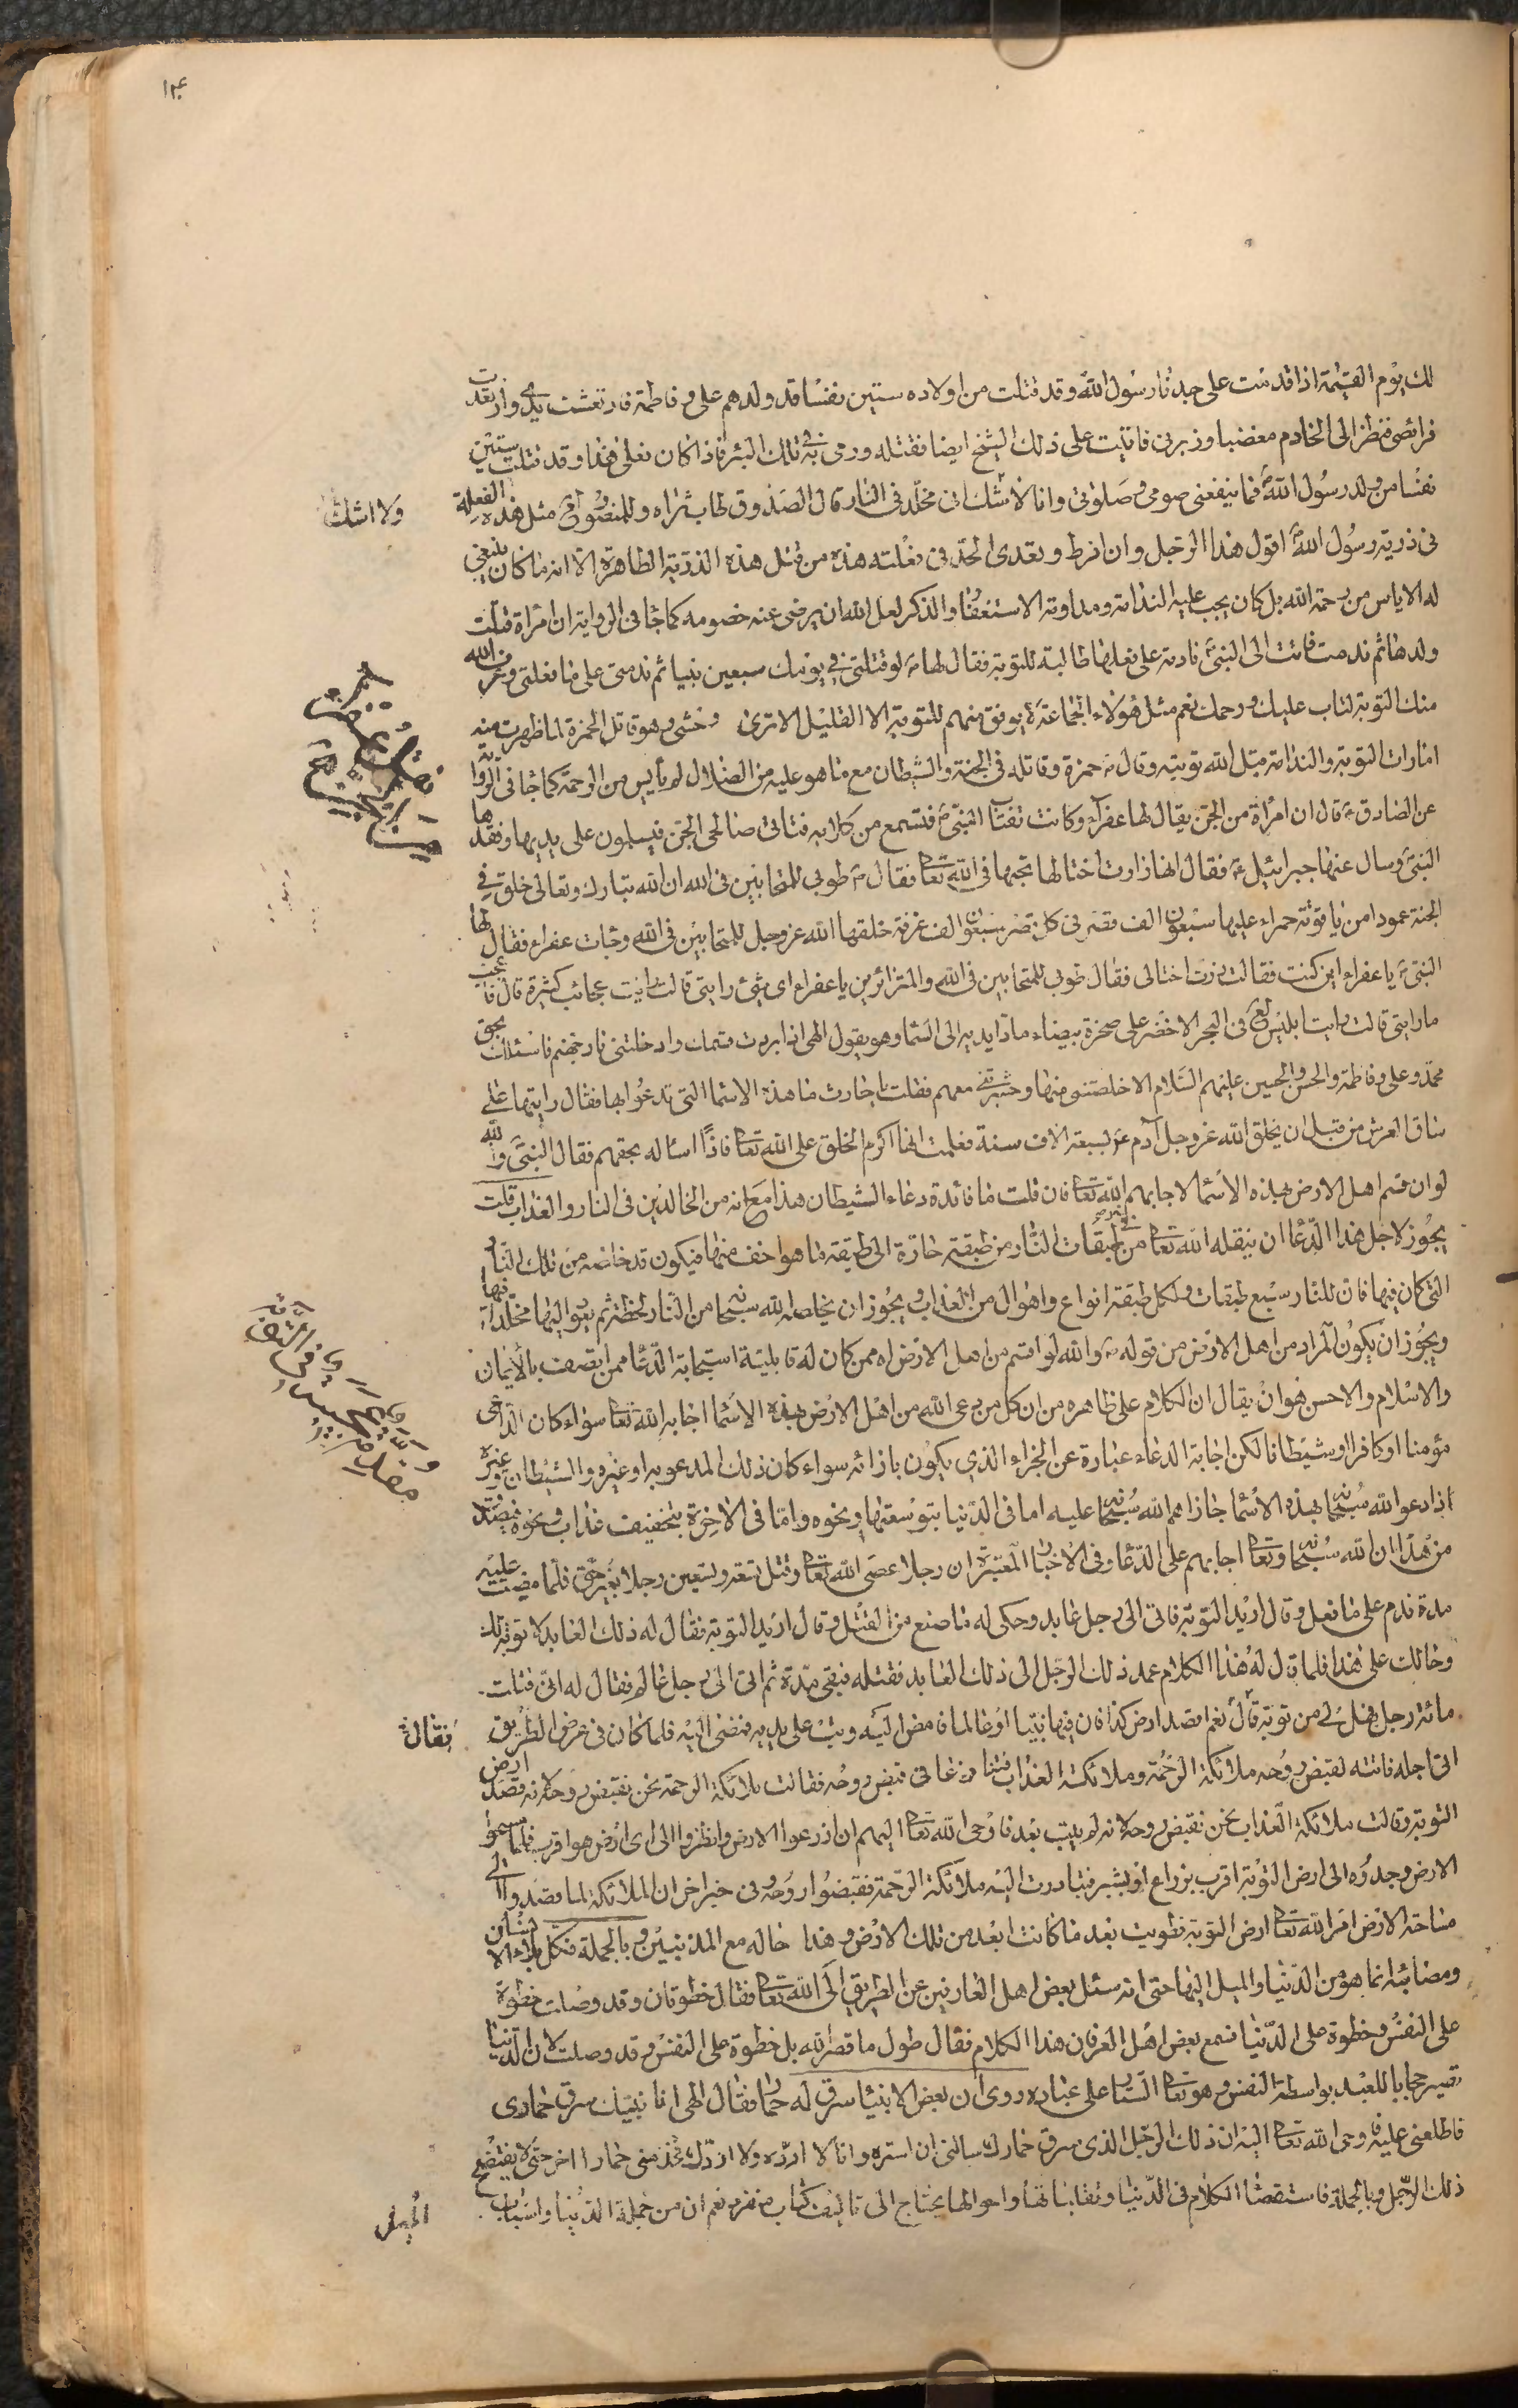 ١٢٤
لك يوم القيمة اذا قدمت على جدنا رسول الله وقد قتلت من اولاده ستين نفسا قد ولدهم على وفاطمة فارتعشت يدى وارتعدت
فرائصى فنظر الى الخادم مغضبا وزبرنى فاتيت على ذلك الشيخ ايضا فقتلته ورمى به فى تلك البئر فاذا كان فعلى هذا وقد قتلت ستين
نفسا من ولد رسول الله ص فما ينفعنى صومى وصلوتى وانا لا اشك انى مخلد فى النار قال الصدوق طاب ثراه وللمنصور مثل هذه الفعلة
ولا اشك
فى ذرية رسول الله ص اقول هذا الرجل وان افرط وتعدى الحد فى فعلته هذه من قتل هذه الذرية الطاهرة الا انه ما كان ينبغى
له الاياس من رحمة الله بل كان يجب عليه الندامة ومداومة الاستغفار والذكر لعل الله ان يرضى عنه خصومه كما جا فى الرواية ان امراة قتلت
ولدها ثم ندمت فاتت الى النبى نادمة على فعلها طالبة للتوبة فقال لها لو قتلتى فى يومك سبعين نبيا ثم ندمتى على ما فعلتى وعرف الله
منك التوبة لتاب عليك ورحمك نعم مثل هؤلاء الجماعة لا يوفق منهم للتوبة الا القليل الا ترى وحشى وهو قاتل الحمزة لما ظهرت منه
امارات التوبة والندامة قبل الله توبته وقال حمزة وقاتله فى الجنة والشيطان مع ما هو عليه من الضلال لم يأيس من الرحمة كما جا فى الرواية
عن الصادق ع قال ان امراة من الجن يقال لها عفراء وكانت تنتاب النبى ص فتسمع من كلامه فتاتى صالحى الجن فيسلمون على يديها وفقدها
النبى وسال عنها جبرائيل ع فقال انها زارت اختا لها تحبها فى الله تعا فقال ص طوبى للمتحابين فى الله ان الله تبارك وتعالى خلق فى
الجنة عمودا من ياقوتة حمراء عليها سبعون الف قصر فى كل قصر سبعون الف غرفة خلقها الله عز وجل للمتحابين فى الله وجات عفراء فقال لها
النبى ص يا عفراء اين كنت فقالت زرت اختا لى فقال طوبى للمتحابين فى الله والمتزائرين يا عفراء اى شئ رايتى قالت رايت عجائب كثيرة قال فاعجب
ما رايتى قالت رايت ابليس لع فى البحر الاخضر على صخرة بيضاء مادا يديه الى السما وهو يقول الهى اذا بررت قسمك وادخلتنى نار جهنم فاسئلك بحق
محمد وعلى وفاطمة والحسن والحسين عليهم السلام الا خلصتنى منها وحشرتنى معهم فقلت يا حارث ما هذه الاسما التى تدعوا بها فقال رايتها على
ساق العرش من قبل ان يخلق الله عز وجل آدم ع بسبعة الاف سنة فعلمت انها اكرم الخلق على الله تعا فانا اساله بحقهم فقال النبى ص والله
لو ان قسم اهل الارض بهذه الاسما لاجابهم الله تعا فان قلت ما فائدة دعاء الشيطان هذا مع انه من الخالدين فى النار والعذاب قلت
يجوز لاجل هذا الدعا ان ينقله الله تعا من طبقات النار من طبقة حارة الى طبقة ما هو اخف منها فيكون قد خلصه من تلك النار
التى كان فيها فان للنار سبع طبقات ولكل طبقة انواع واهوال من العذاب ويجوز ان يخلصه الله سبحانه من النار لحظة ثم يعود اليها مخلدا فيها
ويجوز ان يكون المراد من اهل الارض من قوله ص والله لو اقسم من اهل الارض اه ممن كان له قابلية استجابة الدعا ممن اتصف بالايمان
والاسلام والاحسن هو ان يقال ان الكلام على ظاهره من ان كل من دعى الله من اهل الارض بهذه الاسما اجابه الله تعا سواء كان الداعى
مؤمنا او كافرا او شيطانا لكن اجابة الدعاء عبارة عن الجزاء الذى يكون بازائه سواء كان ذلك المدعو به او غيره والشيطان وغيره
اذا دعوا الله سبحانه بهذه الاسما جازاهم الله سبحانه عليه اما فى الدنيا بتوسعتها ونحوه واما فى الاخرة بتخفيف عذاب ونحوه فيصدق
من هذا ان الله سبحانه وتعا اجابهم على الدعا وفى الاخبار المعتبرة ان رجلا عصى الله تعا وقتل تسعة وتسعين رجلا بغير حق فلما مضت عليه
مدة ندم على ما فعل وقال اريد التوبة فاتى الى رجل عابد وحكى له ما صنع من القتل وقال اريد التوبة فقال له ذلك العابد لا توبة لك
وحالك على هذا فلما قال له هذا الكلام عمد ذلك الرجل الى ذلك العابد فقتله فبقى مدة ثم اتى الى رجل عالم فقال له انى قتلت
مائة رجل فهل لى من توبة قال نعم اقصد ارض كذا فان فيها نبيا او عالما فامض اليه وتب على يديه فمضى اليه فلما كان فى عرض الطريق
فقال
اتى اجله فاتته لقبض روحه ملائكة الرحمة وملائكة العذاب فتنازعا فى قبض روحه فقالت ملائكة الرحمة نحن نقبض روحه لانه قصد ارض
التوبة وقالت ملائكة العذاب نحن نقبض روحه لانه لم يتب بعد فاوحى الله تعا اليهم ان اذرعوا الارض وانظروا الى اى ارض هو اقرب فلما مسحوا
الارض وجدوه الى ارض التوبة اقرب بذراع او بشبر فتبادرت اليه ملائكة الرحمة فقبضوا روحه وفى خبر اخر ان الملائكة لما قصدوا الى
مساحة الارض امر الله تعا ارض التوبة فطويت بعد ما كانت ابعد من تلك الارض وهذا حاله مع المذنبين وبالجملة فكل بلاء الانسان
ومصائبه انما هو من الدنيا والميل اليها حتى انه سئل بعض اهل العارفين عن الطريق الى الله تعا فقال خطوتان وقد وصلت خطوة
على النفس وخطوة على الدنيا فسمع بعض اهل العرفان هذا الكلام فقال طول ما قصر الله بل خطوة على النفس وقد وصلت لان الدنيا
تصير حجابا للعبد بواسطة النفس وهو تعا الستار على عباده روى ان بعض الانبيا سرق له حمار فقال الهى انا نبيك سرق حمارى
فاطلعنى عليه فاوحى الله تعا اليه ان ذلك الرجل الذى سرق حمارك سالنى ان استره وانا لا ارده ولا اردك فخذ منى حمارا اخر حتى لا يفتضح
ذلك الرجل وبالجملة فاستقصا الكلام فى الدنيا وتقلباتها واحوالها يحتاج الى تاليف كتاب منفرد نعم ان من جملة الدنيا واسباب
الميل